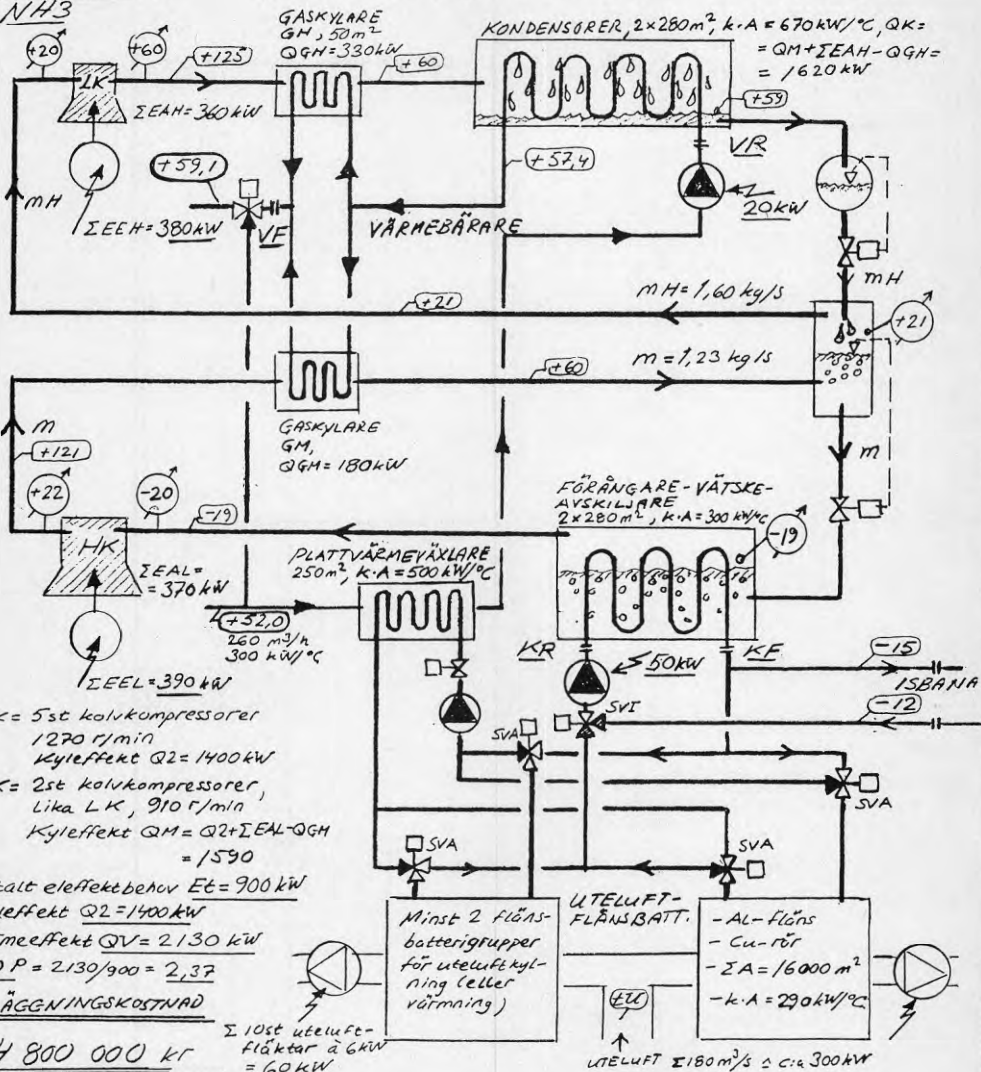 NH3
+20
+60
+125
LK
ΣEAH=360kW
mH
ΣEEH=380kW
GASKYLARE
GH, 50m²
QGH=330kW
+60
KONDENSORER, 2x280m², k·A=670kW/°C, QK=
= QM+ΣEAH-QGH=
= 1620kW
+59
+57,4
VR
20kW
+59,1
VF
VÄRMEBÄRARE
mH
+21
mH=1,60 kg/s
+21
m=1,23 kg/s
+60
GASKYLARE
GM,
QGM=180kW
m
m
+121
+22
-20
-19
HK
ΣEAL=
=370kW
ΣEEL=390kW
FÖRÅNGARE-VÄTSKE-
AVSKILJARE
2x280m², k·A=300kW/°C
-19
PLATTVÄRMEVÄXLARE
250m², k·A=500kW/°C
+52,0
260 m³/h
300 kW/°C
KR
50kW
KF
-15
ISBANA
-12
SVI
SVA
SVA
SVA
SVA
= 5st kolvkompressorer
1270 r/min
Kyleffekt Q2=1400kW
= 2st kolvkompressorer,
Lika LK, 910 r/min
Kyleffekt QM=Q2+ΣEAL-QGH
=1590
talt eleffektbehov Et=900kW
effekt Q2=1400kW
meeffekt QV=2130 kW
P=2130/900=2,37
ÄGGNINGSKOSTNAD
800 000 kr
Minst 2 fläns-
batterigrupper
för uteluftkyl-
ning (eller
värmning)
UTELUFT-
FLÄNSBATT.
- Al-fläns
- Cu-rör
- ΣA=16000 m²
- k·A=290kW/°C
Σ 10st uteluft-
fläktar à 6kW
= 60kW
±U
UTELUFT Σ180m³/s ≙ c:a 300kW